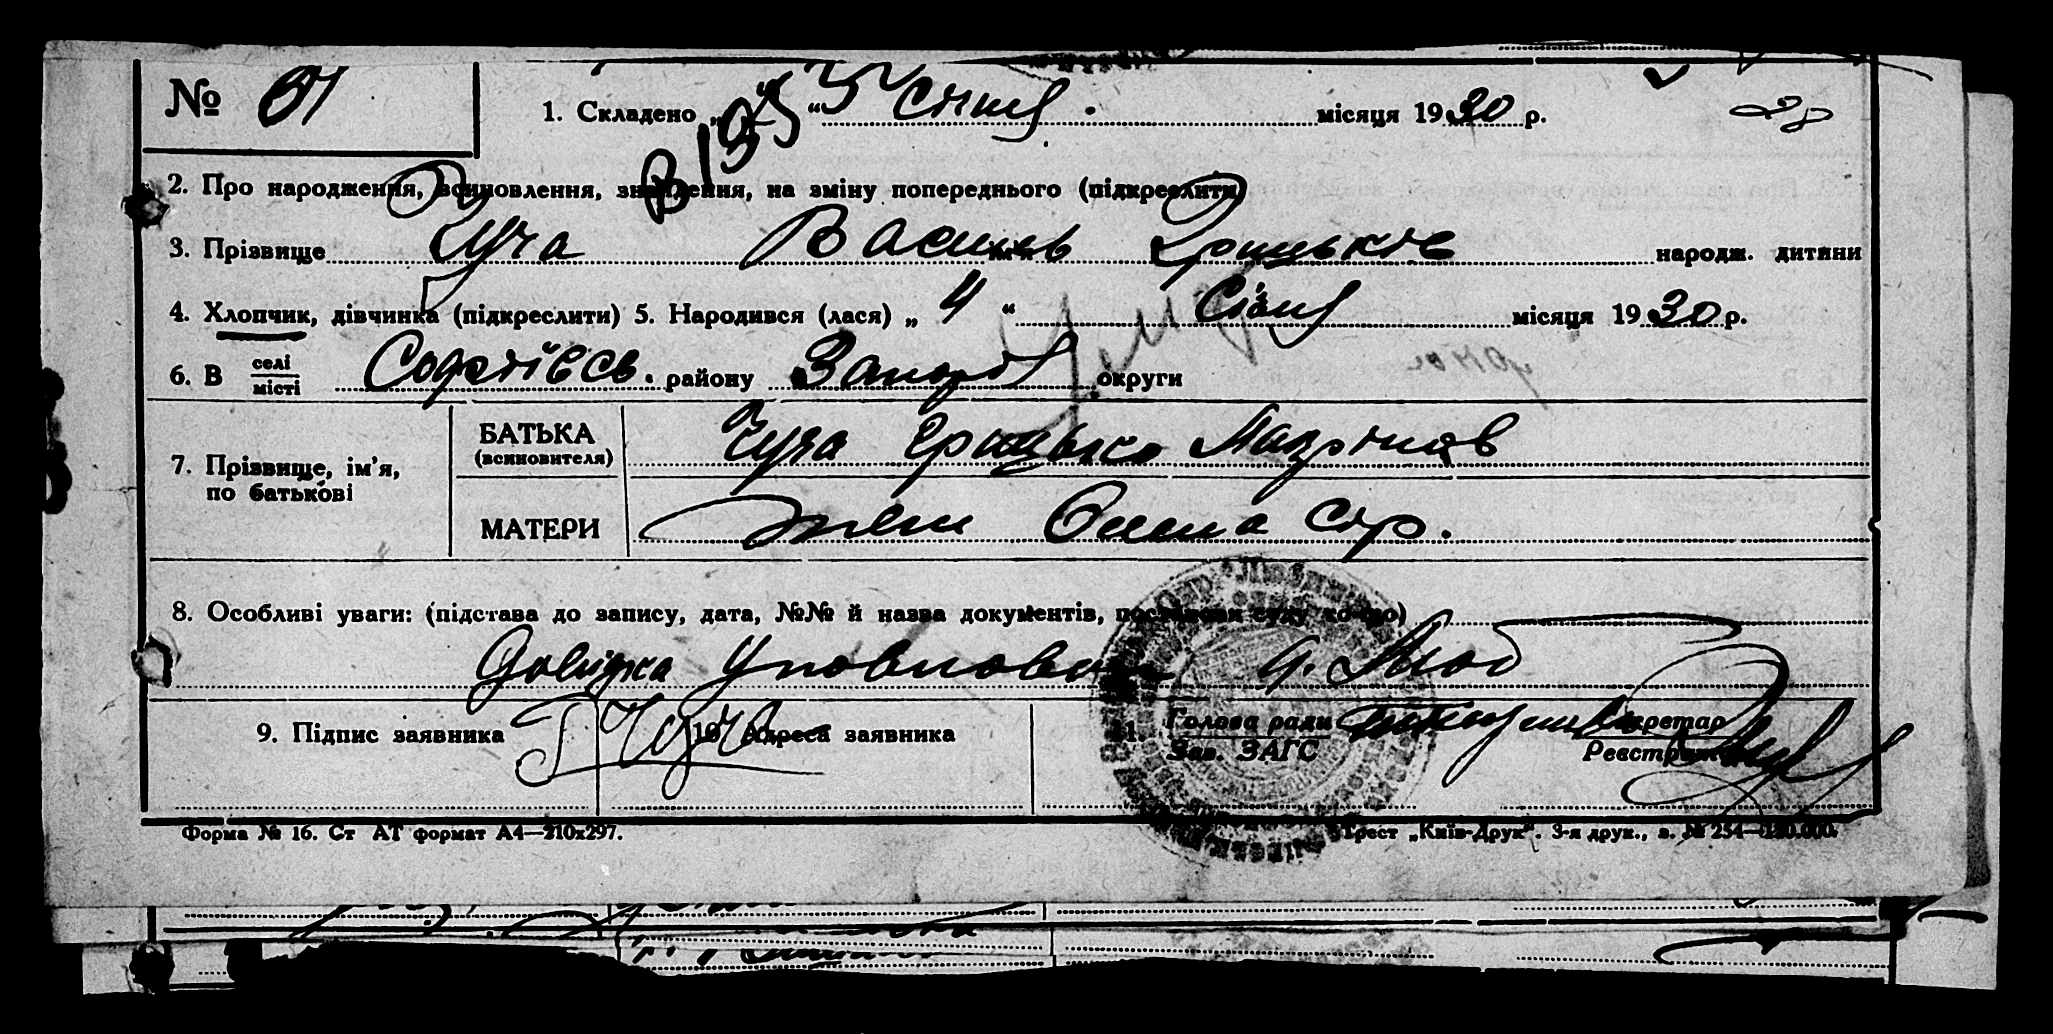 № 61
1. Складено „ “ Січня місяця 1930 р. 28
В 1955
2. Про народження, всиновлення, знайдення, на зміну попереднього (підкреслити)
3. Прізвище Чуча Василь Грицьків народж. дитини
4. Хлопчик, дівчинка (підкреслити) 5. Народився (лася) „ 4 “ Січня місяця 1930 р.
6. В селі / місті Софіївсь. району Запор округи
7. Прізвище, ім'я, по батькові
БАТЬКА (всиновителя) Чуча Грицько
МАТЕРИ Олена
8. Особливі уваги: (підстава до запису, дата, №№ й назва документів, постанови суду то-що)
Довідка Уповнов
9. Підпис заявника Г Чуча 10. Адреса заявника 11. Голова ради / Зав. ЗАГС Секретар / Реєстратор
Форма № 16. Ст АТ формат А4—210х297. Трест „Київ-Друк“. 3-я друк., з. № 254—